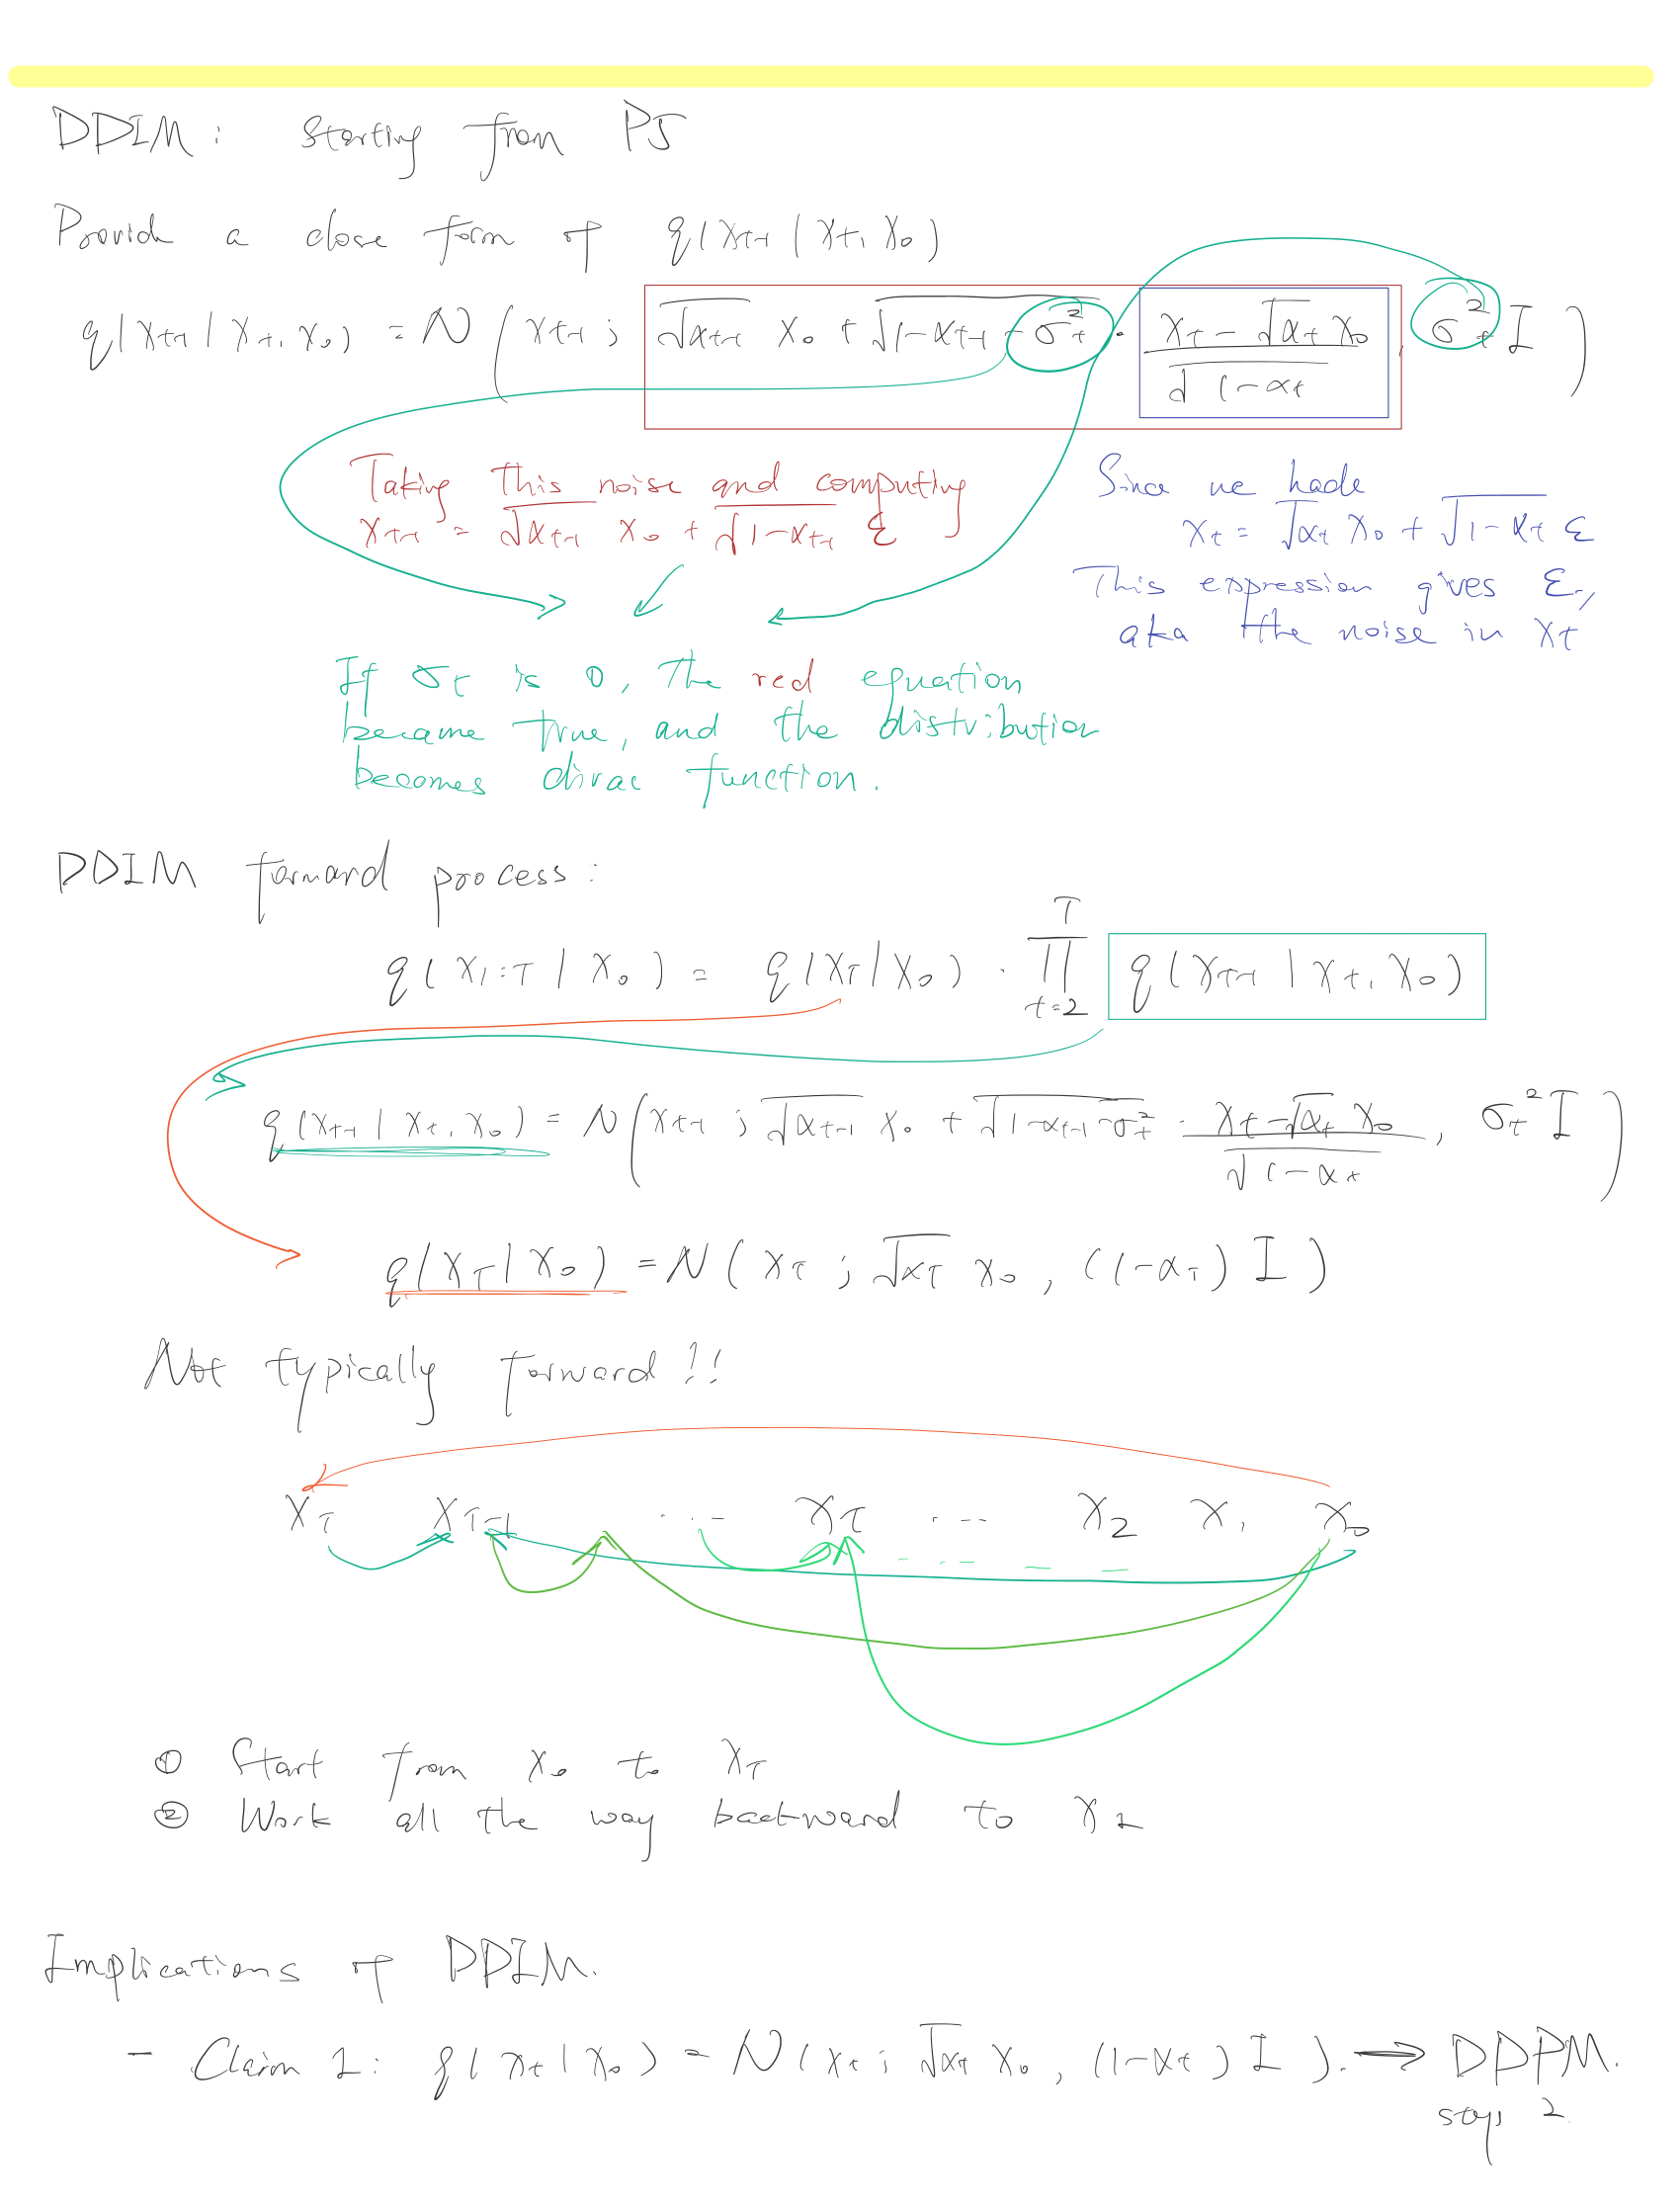 DDIM: Starting from P5
Provide a close form of q(x_{t-1} | x_t, x_0)
q(x_{t-1} | x_t, x_0) = N( x_{t-1} ; √α_{t-1} x_0 + √(1-α_{t-1}-σ_t²) · (x_t - √α_t x_0)/√(1-α_t) , σ_t² I )
Taking this noise and computing
x_{t-1} = √α_{t-1} x_0 + √(1-α_{t-1}) ε
Since we hade
x_t = √α_t x_0 + √(1-α_t) ε
This expression gives ε,
aka the noise in x_t
If σ_t is 0, the red equation
became true, and the distribution
becomes dirac function.
DDIM forward process:
q(x_{1:T} | x_0) = q(x_T | x_0) · ∏_{t=2}^{T} q(x_{t-1} | x_t, x_0)
q(x_{t-1} | x_t, x_0) = N( x_{t-1} ; √α_{t-1} x_0 + √(1-α_{t-1}-σ_t²) · (x_t - √α_t x_0)/√(1-α_t) , σ_t² I )
q(x_T | x_0) = N( x_T ; √α_T x_0 , (1-α_T) I )
Not typically forward!!
x_T x_{T-1} ... x_t ... x_2 x_1 x_0
① Start from x_0 to x_T
② Work all the way backward to x_1
Implications of DDIM.
- Claim 1: q(x_t | x_0) = N( x_t ; √α_t x_0 , (1-α_t) I ). → DDPM.
step 2